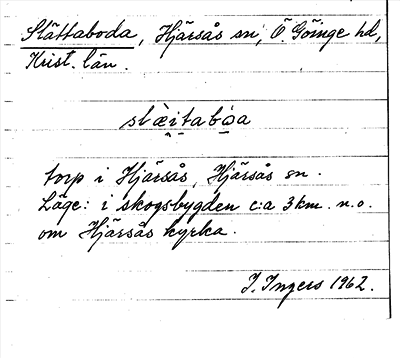 Slättaboda, Hjärsås sn, Ö. Göinge hd,
Krist. län.
slæ̀i̯tabó̤a
torp i Hjärsås, Hjärsås sn.
Läge: i skogsbygden c:a 3 km. n.o.
om Hjärsås kyrka.
I. Ingers 1962.